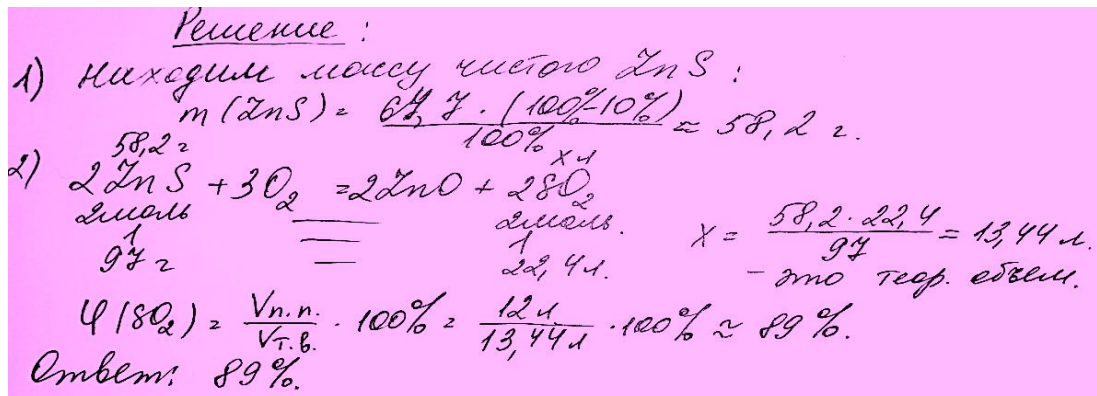 Решение:
1) Находим массу чистого ZnS:
m(ZnS) = 67,7 · (100% - 10%) / 100% ≈ 58,2 г.
58,2 г x л
2) 2ZnS + 3O2 = 2ZnO + 2SO2
2моль 2моль.
1 1
97 г 22,4 л.
x = 58,2 · 22,4 / 97 = 13,44 л.
- это теор. объем.
φ(SO2) = Vп.п. / Vт.в. · 100% = 12 л / 13,44 л · 100% ≈ 89%.
Ответ: 89%.